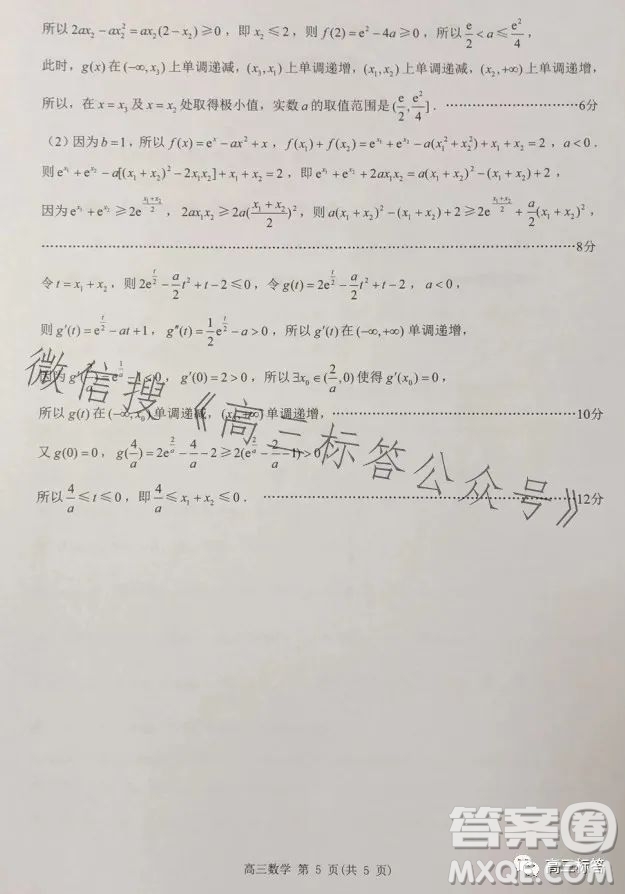 所以 2ax₂ − ax₂² = ax₂(2 − x₂) ≥ 0，即 x₂ ≤ 2，则 f(2) = e² − 4a ≥ 0，所以 e/2 < a ≤ e²/4，
此时，g(x) 在 (−∞, x₃) 上单调递减，(x₃, x₁) 上单调递增，(x₁, x₂) 上单调递减，(x₂, +∞) 上单调递增，
所以，在 x = x₃ 及 x = x₂ 处取得极小值，实数 a 的取值范围是 (e/2, e²/4]．……………………6分
（2）因为 b = 1，所以 f(x) = eˣ − ax² + x，f(x₁) + f(x₂) = e^{x₁} + e^{x₂} − a(x₁² + x₂²) + x₁ + x₂ = 2，a < 0．
则 e^{x₁} + e^{x₂} − a[(x₁ + x₂)² − 2x₁x₂] + x₁ + x₂ = 2，即 e^{x₁} + e^{x₂} + 2ax₁x₂ = a(x₁ + x₂)² − (x₁ + x₂) + 2，
因为 e^{x₁} + e^{x₂} ≥ 2e^{(x₁+x₂)/2}，2ax₁x₂ ≥ 2a((x₁ + x₂)/2)²，则 a(x₁ + x₂)² − (x₁ + x₂) + 2 ≥ 2e^{(x₁+x₂)/2} + a/2(x₁ + x₂)²，
……………………8分
令 t = x₁ + x₂，则 2e^{t/2} − a/2 t² + t − 2 ≤ 0，令 g(t) = 2e^{t/2} − a/2 t² + t − 2，a < 0，
则 g′(t) = e^{t/2} − at + 1，g″(t) = 1/2 e^{t/2} − a > 0，所以 g′(t) 在 (−∞, +∞) 单调递增，
因为 g′(2/a) = e^{1/a} − 1 < 0，g′(0) = 2 > 0，所以 ∃x₀ ∈ (2/a, 0) 使得 g′(x₀) = 0，
所以 g(t) 在 (−∞, x₀) 单调递减，(x₀, +∞) 单调递增，……………………10分
又 g(0) = 0，g(4/a) = 2e^{2/a} − 4/a − 2 ≥ 2(e^{2/a} − 2/a − 1) > 0
所以 4/a ≤ t ≤ 0，即 4/a ≤ x₁ + x₂ ≤ 0．……………………12分
微信搜《高三标答公众号》
高三数学 第 5 页(共 5 页)
答案卷
高三标答
MXQE.COM